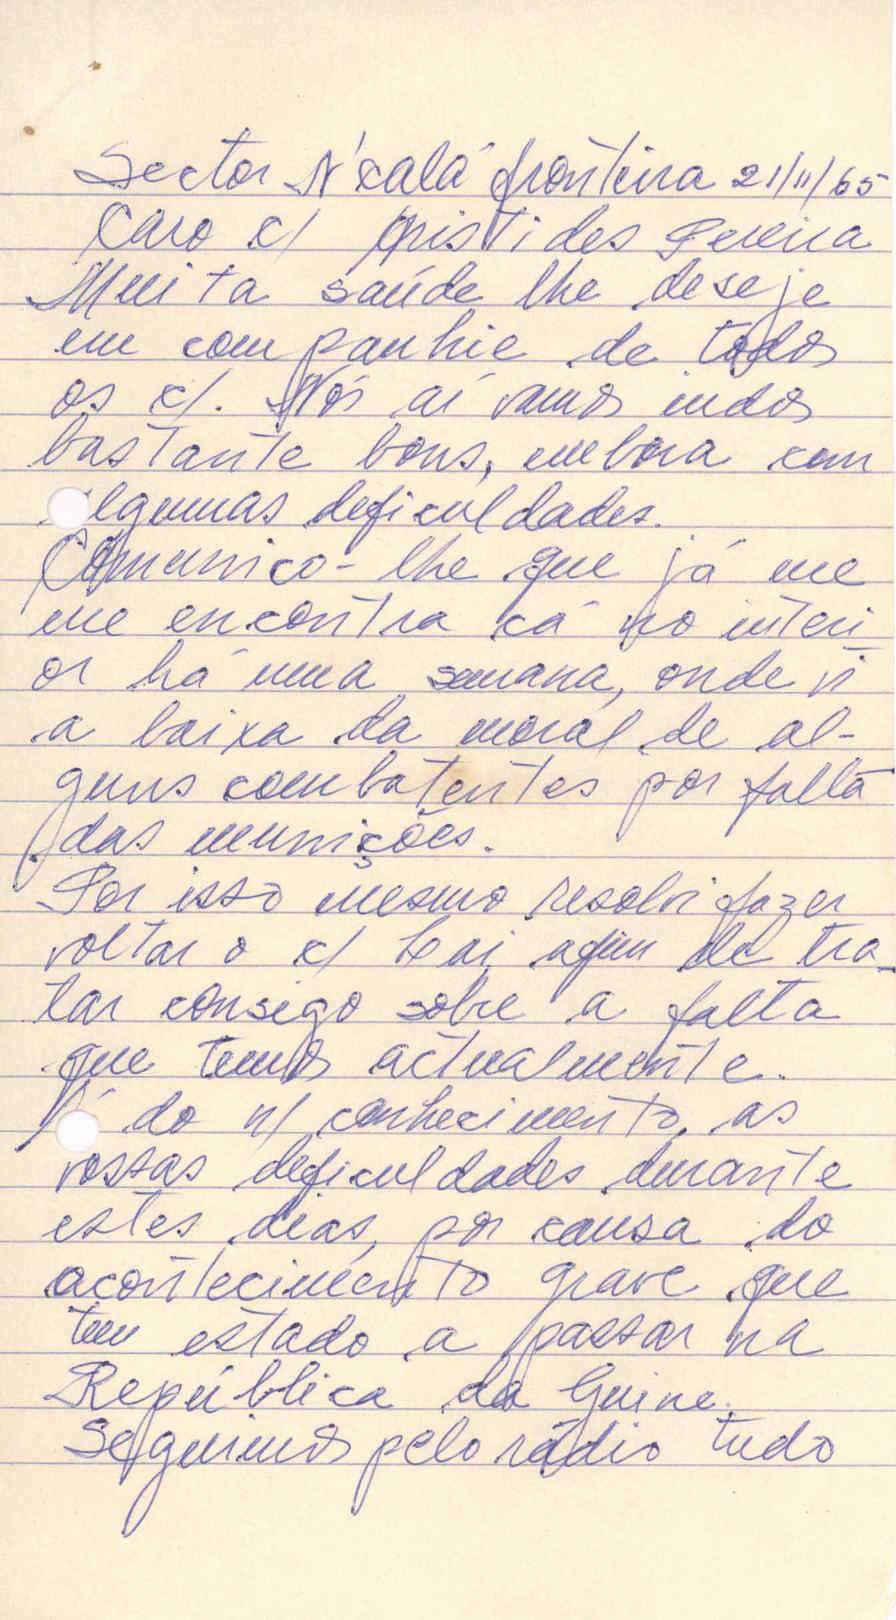 Sector N'calá fronteira 21/11/65
Caro c/ Aristides Pereira
Muita saúde lhe deseje
em companhie de todos
os c/. Nós aí vamos indos
bastante bons, embora com
algumas deficuldades.
Comunico-lhe que já me
me encontra cá no interi
or há uma semana, onde vi
a baixa da moral de al-
guns combatentes por falta
das munições.
Por isso mesmo resolvi fazer
voltar o c/ Lai afim de tra-
tar consigo sobre a falta
que temos actualmente.
É do n/ conhecimento, as
vossas deficuldades durante
estes dias, por causa do
acontecimento grave que
tem estado a passar na
República da Guine.
Seguimos pelo rádio tudo